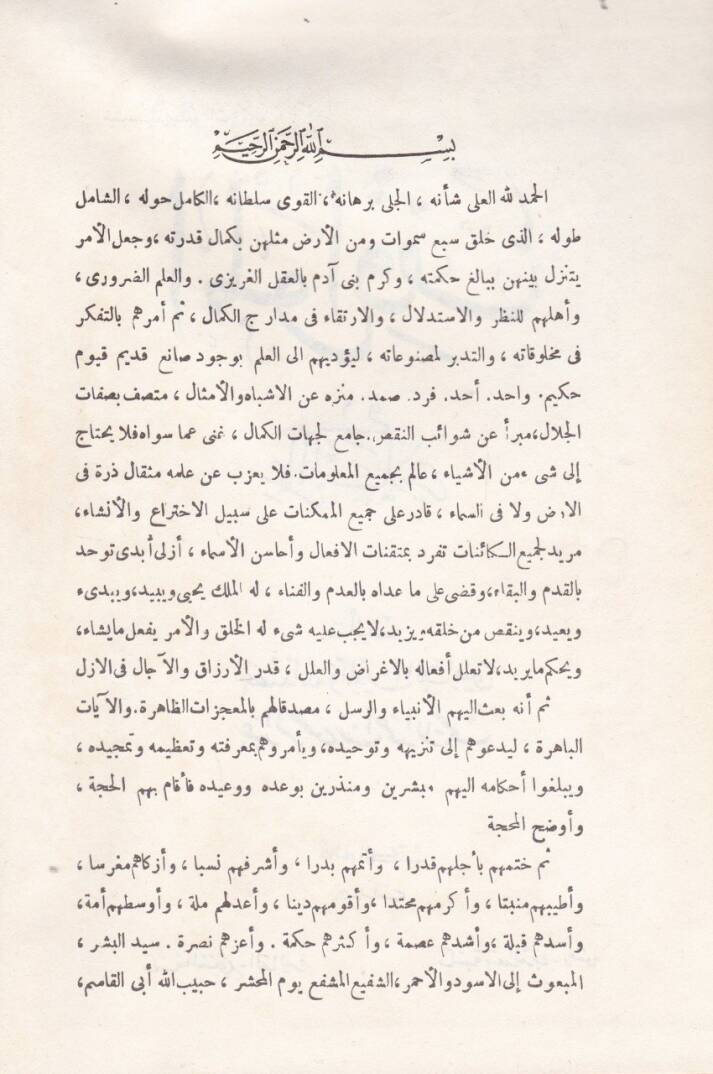 بسم الله الرحمن الرحيم
الحمد لله العلى شأنه ، الجلى برهانه ، القوى سلطانه ، الكامل حوله ، الشامل
طوله ، الذى خلق سبع سموات ومن الأرض مثلهن بكمال قدرته ، وجعل الأمر
يتنزل بينهن ببالغ حكمته ، وكرم بنى آدم بالعقل الغريزى . والعلم الضرورى ،
وأهلهم للنظر والاستدلال ، والارتقاء فى مدارج الكمال ، ثم أمرهم بالتفكر
فى مخلوقاته ، والتدبر لمصنوعاته ، ليؤديهم الى العلم بوجود صانع قديم قيوم
حكيم. واحد. أحد. فرد. صمد. منزه عن الاشباه والأمثال ، متصف بصفات
الجلال، مبرأ عن شوائب النقص. جامع لجهات الكمال ، غنى عما سواه فلا يحتاج
إلى شىء من الأشياء ، عالم بجميع المعلومات. فلا يعزب عن علمه مثقال ذرة فى
الارض ولا فى السماء ، قادر على جميع الممكنات على سبيل الاختراع والأنشاء،
مريد لجميع الكائنات تفرد بمتقنات الافعال وأحاسن الأسماء ، أزلى أبدى توحد
بالقدم والبقاء، وقضى على ما عداه بالعدم والفناء ، له الملك يحيى ويبيد، ويبدىء
ويعيد، وينقص من خلقه ويزيد، لا يجب عليه شىء له الخلق والأمر يفعل مايشاء،
ويحكم ما يريد، لا تعلل أفعاله بالاغراض والعلل ، قدر الأرزاق والآجال فى الازل
ثم أنه بعث اليهم الأنبياء والرسل ، مصدقا لهم بالمعجزات الظاهرة. والآيات
الباهرة ، ليدعوهم إلى تنزيهه وتوحيده، ويأمروهم بمعرفته وتعظيمه وتمجيده ،
ويبلغوا أحكامه اليهم مبشرين ومنذرين بوعده ووعيده فأقام بهم الحجة ،
وأوضح المحجة
ثم ختمهم بأجلهم قدرا ، وأتمهم بدرا ، وأشرفهم نسبا ، وأزكاهم مغرسا ،
وأطيبهم منبتا ، وأكرمهم محتدا ، وأقومهم دينا ، وأعدلهم ملة ، وأوسطهم أمة،
وأسدهم قبلة ، وأشدهم عصمة ، وأكثرهم حكمة . وأعزهم نصرة . سيد البشر ،
المبعوث إلى الاسود والأحمر، الشفيع المشفع يوم المحشر ، حبيب الله أبى القاسم،